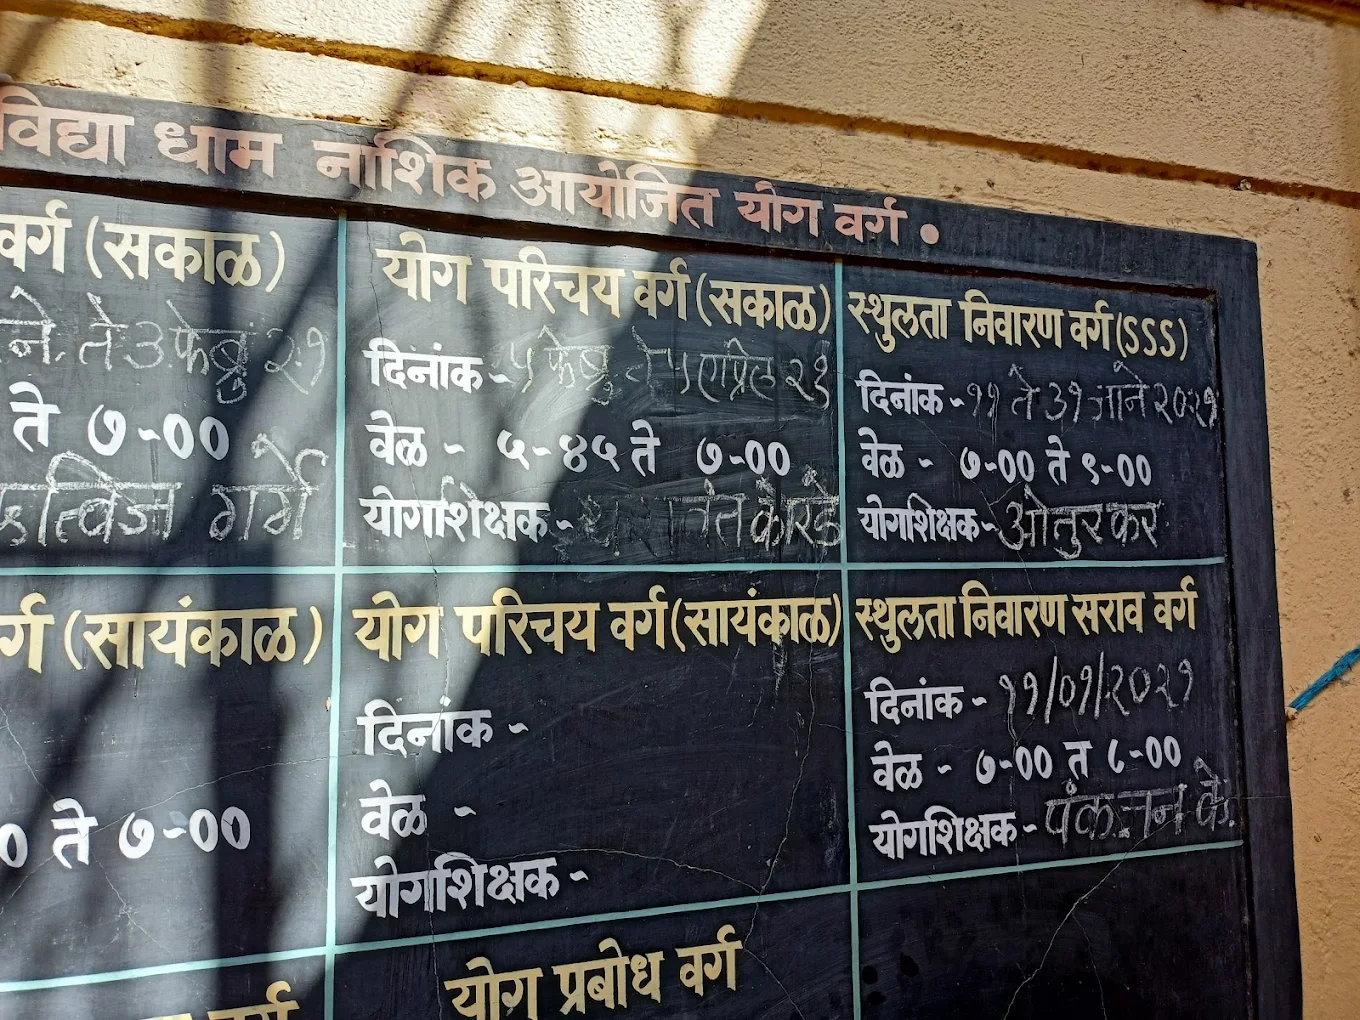 विद्या धाम नाशिक आयोजित योग वर्ग •
वर्ग (सकाळ)
ने. ते ३ फेब्रु २१
ते ७-००
गर्गे
योग परिचय वर्ग (सकाळ)
दिनांक - ५ फेब्रु ते ५ एप्रिल २१
वेळ - ५-४५ ते ७-००
योगशिक्षक -
स्थुलता निवारण वर्ग (SSS)
दिनांक - ११ ते ३१ जाने २०२१
वेळ - ७-०० ते ९-००
योगशिक्षक - ओतुरकर
र्ग (सायंकाळ)
० ते ७-००
योग परिचय वर्ग (सायंकाळ)
दिनांक -
वेळ -
योगशिक्षक -
स्थुलता निवारण सराव वर्ग
दिनांक - ११/०१/२०२१
वेळ - ७-०० त ८-००
योगशिक्षक -
वर्ग
योग प्रबोध वर्ग